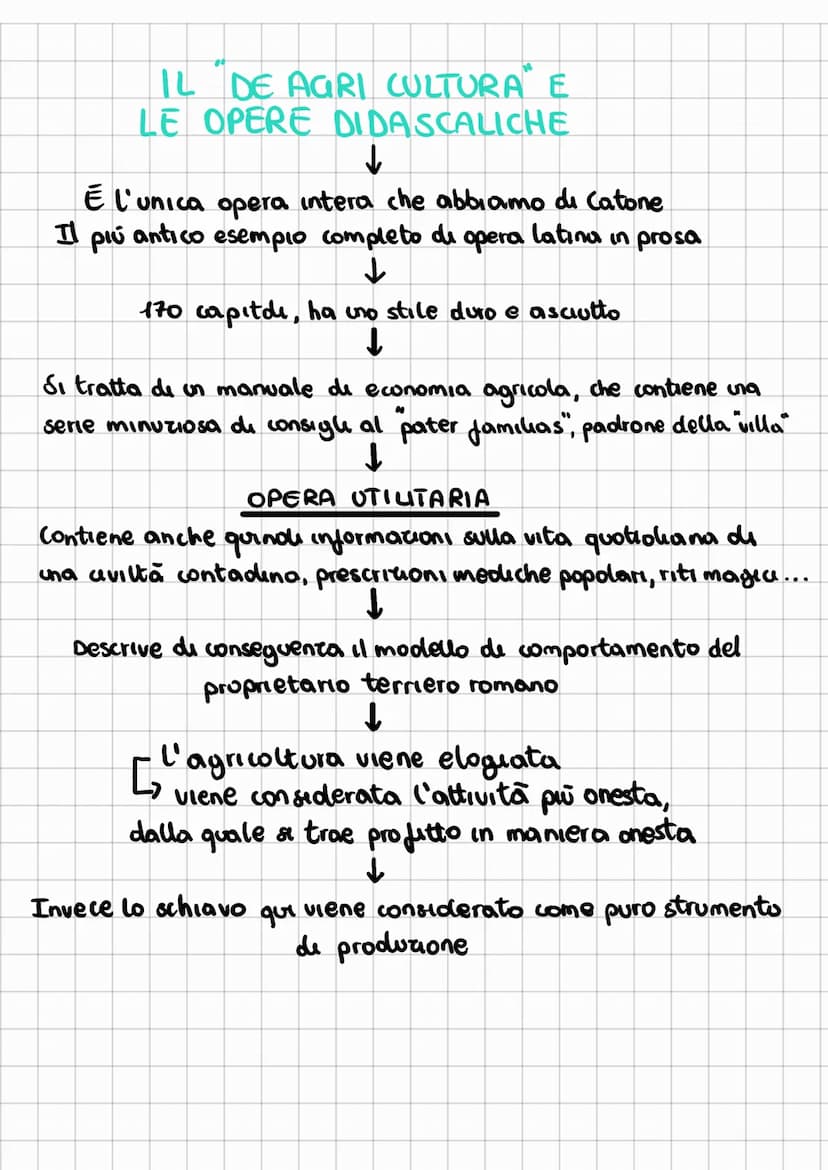 IL "DE AGRI CULTURA" E
LE OPERE DIDASCALICHE
↓
É l'unica opera intera che abbiamo di Catone
Il piú antico esempio completo di opera latina in prosa
↓
170 capitoli, ha uno stile duro e asciutto
↓
Si tratta di un manuale di economia agricola, che contiene una
serie minuziosa di consigli al "pater familias", padrone della "villa"
↓
OPERA UTILITARIA
Contiene anche quindi informazioni sulla vita quotidiana di
una civiltà contadina, prescrizioni mediche popolari, riti magici...
↓
Descrive di conseguenza il modello di comportamento del
proprietario terriero romano
↓
l'agricoltura viene elogiata
↳ viene considerata l'attività più onesta,
dalla quale si trae profitto in maniera onesta
↓
Invece lo schiavo qui viene considerato come puro strumento
di produzione